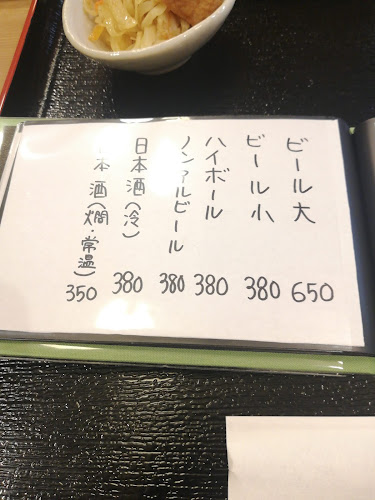 ビール大 650
ビール小 380
ハイボール 380
ノンアルビール 380
日本酒(冷) 380
本酒(燗・常温) 350